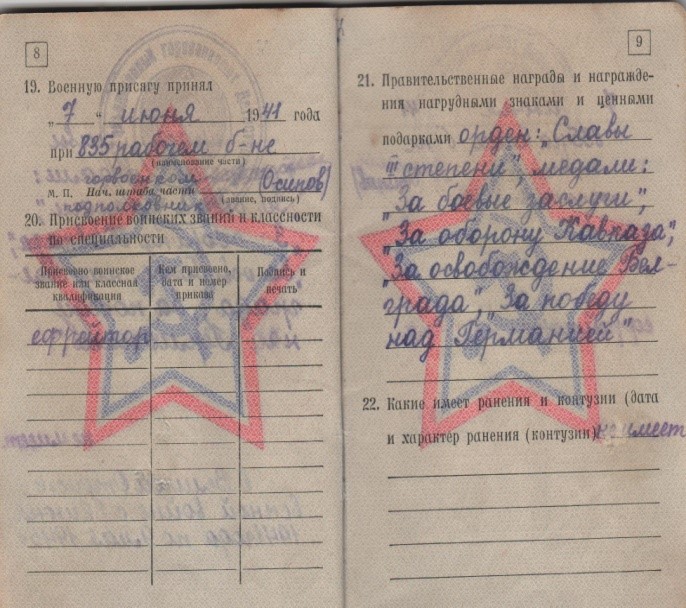 8
19. Военную присягу принял
„7“ июня 1941 года
при 835 рабочем б-не
(наименование части)
горвоенком
М. П. Нач. штаба части (Осипов)
(звание, подпись)
подполковник
20. Присвоение воинских званий и классности
по специальности
Присвоено воинское звание или классная квалификация
Кем присвоено, дата и номер приказа
Подпись и печать
ефрейтор
9
21. Правительственные награды и награжде-
ния нагрудными знаками и ценными
подарками орден: „Славы
III степени“, медали:
„За боевые заслуги“,
„За оборону Кавказа“,
„За освобождение Бел-
града“, „За победу
над Германией“
22. Какие имеет ранения и контузии (дата
и характер ранения (контузии) не имеет